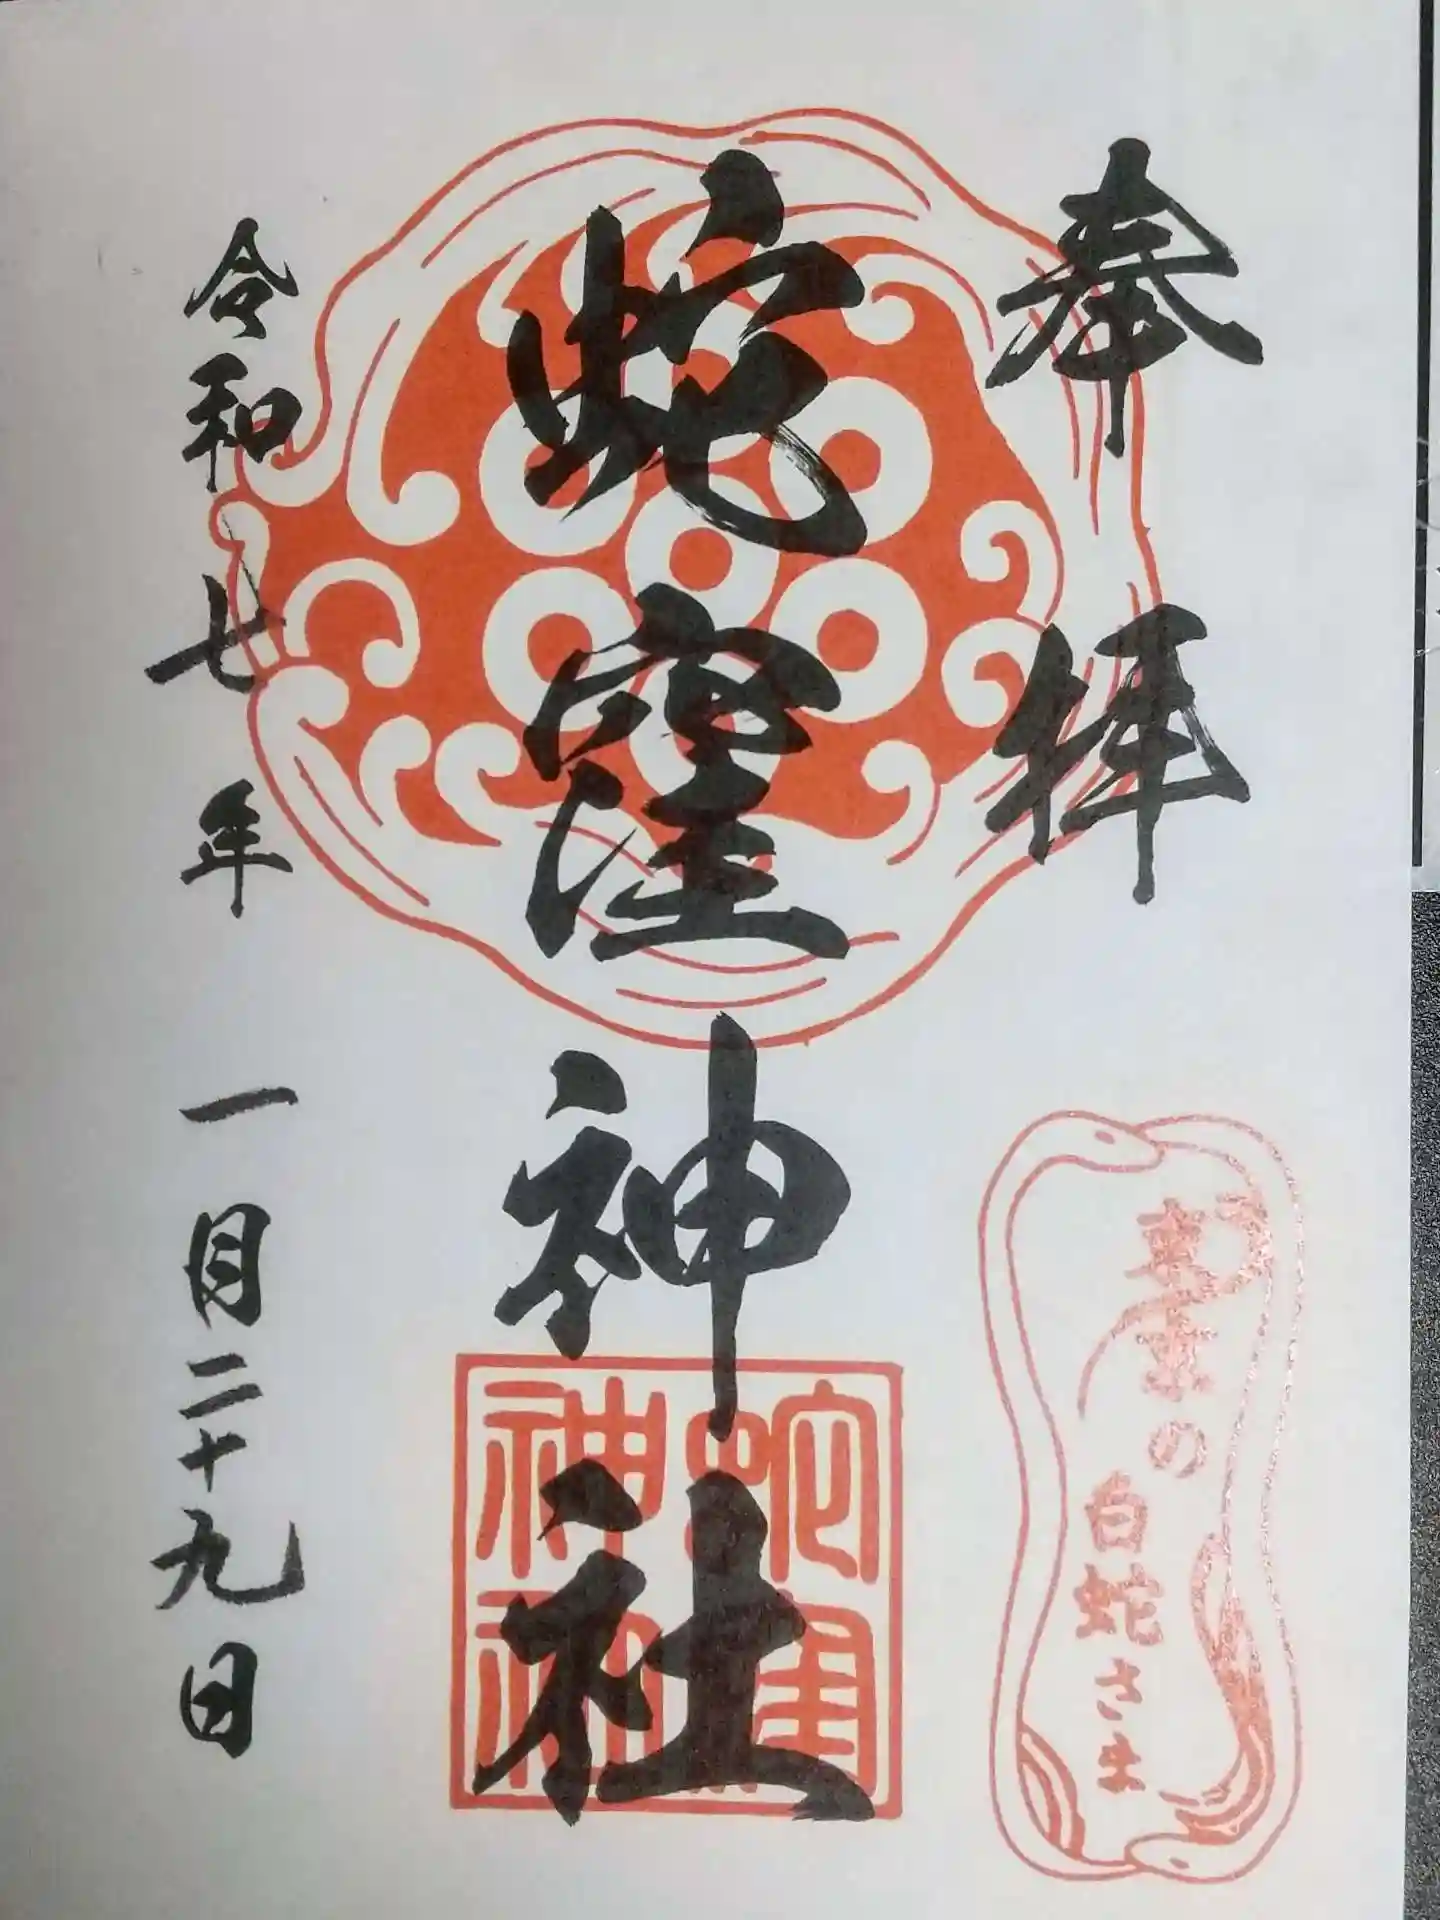 奉拝
蛇窪神社
令和七年 一月二十九日
東京の
白蛇さま
蛇窪
神社